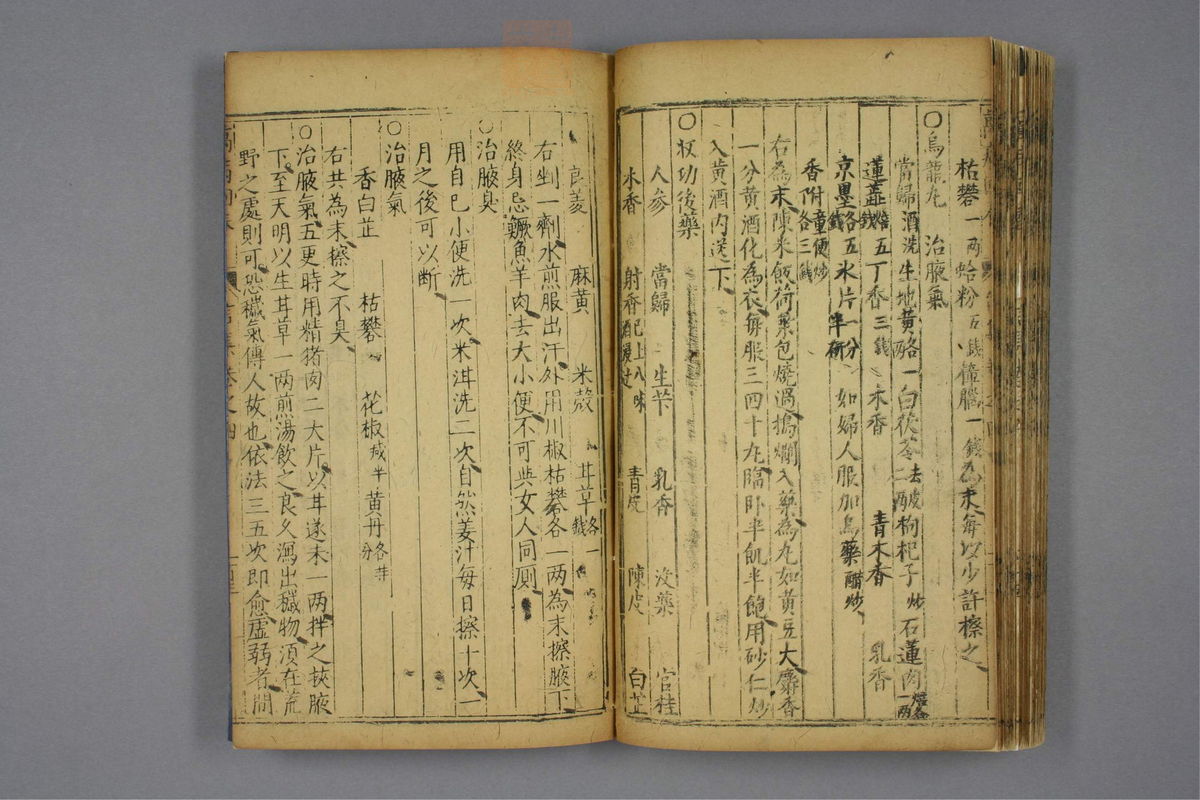 枯礬一兩 蛤粉五錢 一錢為末每以少許擦之
○烏龍丸 治腋氣
當歸酒洗 生地黃 各一 白茯苓二兩去皮 枸杞子炒 石蓮肉焙各一兩
蓮蕋焙五錢 丁香三錢 木香 青木香 乳香
京墨各五錢 氷片一分半研 如婦人服加烏藥醋炒
香附童便炒各三錢
右為末陳米飯荷葉包燒過搗爛入藥為丸如黃豆大麝香
一分黃酒化為衣每服三四十丸臨卧半飢半飽用砂仁炒
入黃酒內送下
○杖功後藥
人參 當歸 生芐 乳香 沒藥 官桂
木香 射香 已上八味 青皮 陳皮 白芷
良姜 麻黃 米殼 甘草各一錢
右剉一劑水煎服出汗外用川椒枯礬各一兩為末擦腋下
終身忌鱖魚羊肉去大小便不可與女人同厠
○治腋臭
用自己小便洗一次米泔洗二次自然姜汁每日擦十次一
月之後可以斷
○治腋氣
香白芷 枯礬 花椒 黃丹各半分
右共為末擦之不臭
○治腋氣五更時用精猪肉二大片以甘遂末一兩拌之挾腋
下至天明以生甘草一兩煎湯飲之良久瀉出穢物須在荒
野之處則可恐穢氣傳人故也依法三五次即愈虛弱者間